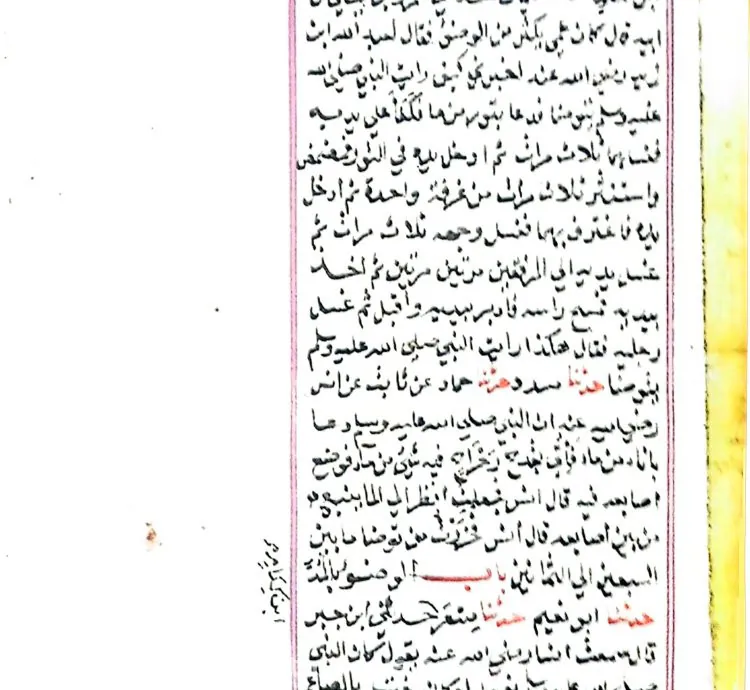 ابيه قال كان عمي يكثر من الوضوء فقال لعبد الله ابن
زيد رضي الله عنه اخبرني كيف رايت النبي صلى الله
عليه وسلم يتوضا فدعا بتور من ما فكفا علي يديه
فغسلهما ثلاث مرات ثم ادخل يده في التور فمضمض
واستنثر ثلاث مرات من غرفة واحدة ثم ادخل
يده فاغترف بهما فغسل وجهه ثلاث مرات ثم
غسل يديه الي المرفقين مرتين مرتين ثم اخذ
بيده فمسح راسه فادبر بيديه واقبل ثم غسل
رجليه فقال هكذا رايت النبي صلى الله عليه وسلم
يتوضا حدثنا مسدد حدثنا حماد عن ثابت عن انس
رضي الله عنه ان النبي صلى الله عليه وسلم دعا
باناء من ماء فأتي بقدح رَحْرَاح فيه شيئ من ماء فوضع
اصابعه فيه قال انس فجعلت انظر الي الما ينبع
من بين أصابعه قال أنس فحزرت من توضا ما بين
السبعين الي الثمانين باب الوضوء بالمد
حدثنا ابو نعيم حدثنا مسعر حدثني ابن جبر
قال سمعت انسا رضي الله عنه يقول كان النبي
صلى الله عليه وسلم يغسل او كان يغتسل بالصاع